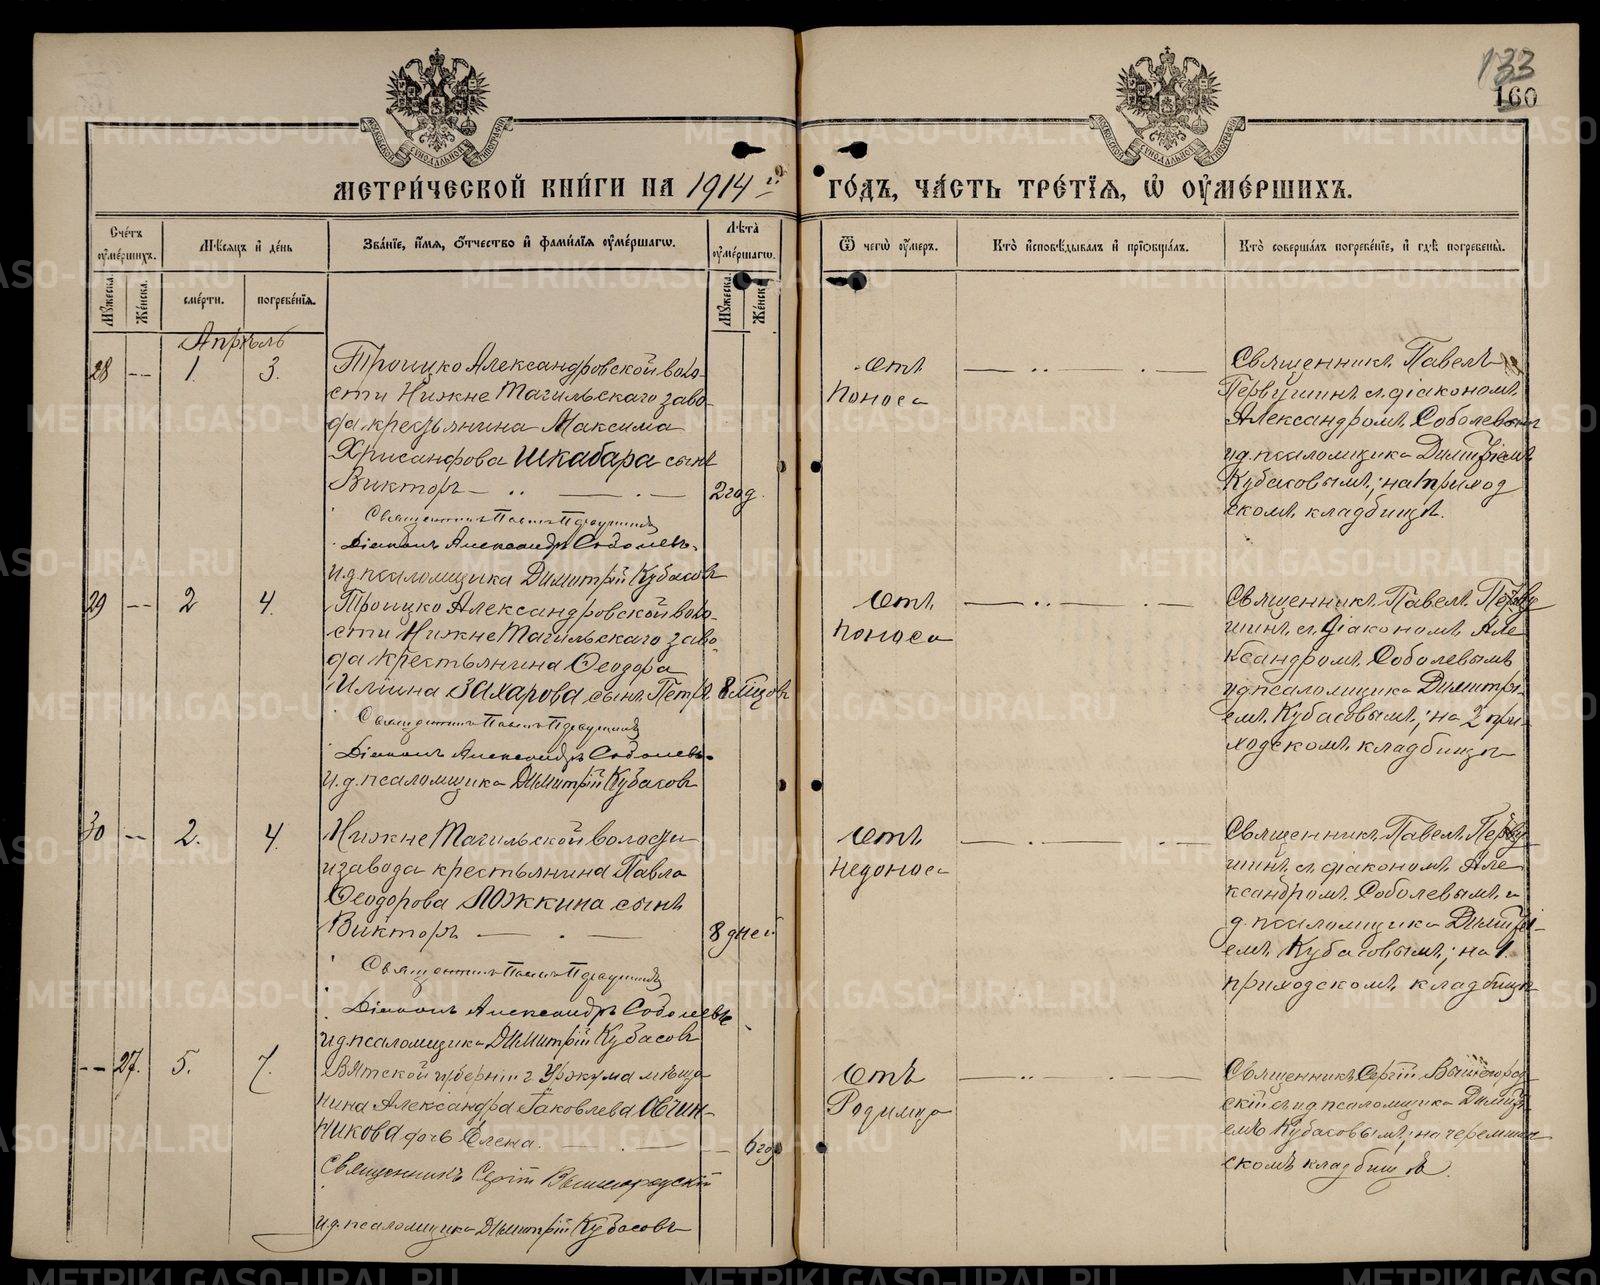 133
160
МЕТРИЧЕСКОЙ КНИГИ НА 1914 й ГОДЪ, ЧАСТЬ ТРЕТІЯ, Ѡ ОУМЕРШИХЪ.
Счетъ оумершихъ.
Мѣсяцъ и день
Званіе, имя, отчество и фамилія оумершагѡ.
Лѣта оумершагѡ.
Ѿ чегѡ оумеръ.
Кто исповѣдывалъ и пріобщалъ.
Кто совершалъ погребеніе, и гдѣ погребены.
Мужеска.
Женска.
смерти.
погребенія.
Мужеска.
Женска.
Апрѣль
28 -- 1. 3.
Троицко Александровской воло-
сти Нижне Тагильскаго заво-
да крестьянина Максима
Хрисанфова Шкабара сынъ
Викторъ
2 год.
Священникъ Павелъ Первушинъ
Діаконъ Александръ Соболевъ.
И.д. псаломщика Димитрій Кубасовъ
отъ
поноса
Священникъ Павелъ
Первушинъ съ діакономъ
Александромъ Соболевымъ
и д. псаломщика Димитріемъ
Кубасовымъ; на 1 приход
скомъ кладбищѣ.
29 -- 2 4.
Троицко Александровской воло-
сти Нижне Тагильскаго заво-
да крестьянина Ѳеодора
Иліина Захарова сынъ Петръ
8 мѣсцовъ
Священникъ Павелъ Первушинъ
Діаконъ Александръ Соболевъ.
И.д. псаломщика Димитрій Кубасовъ
отъ
поноса
Священникъ Павелъ Перву
шинъ съ діакономъ Але
ксандромъ Соболевымъ
и д псаломщика Димитрі-
емъ Кубасовымъ; на 2 при-
ходскомъ кладбищѣ
30 -- 2. 4.
Нижне Тагильской волости
и завода крестьянина Павла
Ѳеодорова Ложкина сынъ
Викторъ
8 дней
Священникъ Павелъ Первушинъ
Діаконъ Александръ Соболевъ
и д. псаломщика Димитрій Кубасовъ
отъ
недоноса
Священникъ Павелъ Перву
шинъ съ діакономъ Але
ксандромъ Соболевымъ и
д. псаломщика Димитрі-
емъ Кубасовымъ; на 1.
приходскомъ кладбищѣ
-- 27. 5. 7.
Вятской губерніи г Уржума мѣща
нина Александра Іаковлева Овчин-
никова дочь Елена.
6 год
Священникъ Сергій Вышегородскій
и д. псаломщика Димитрій Кубасовъ
отъ
Родимца
Священникъ Сергій Вышегород
скій съ и д псаломщика Димитрі-
емъ Кубасовымъ; на черемшан
скомъ кладбищѣ.
METRIKI.GASO-URAL.RU